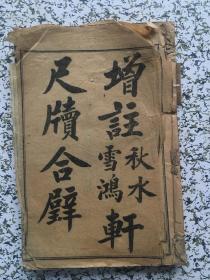 增註秋水軒
雪鴻
尺牘合璧